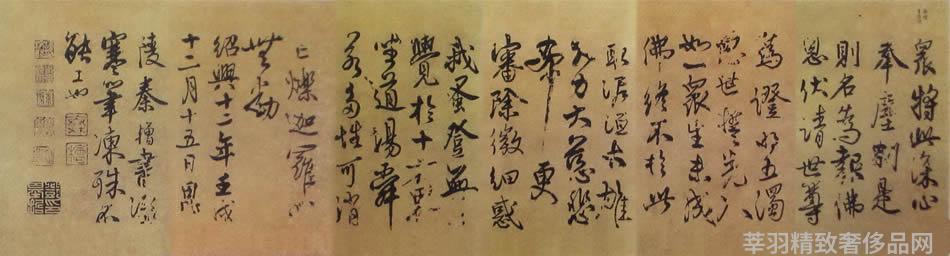 眾將此深心
奉塵剎是
則名為報佛
恩伏請世尊
為證明五濁
惡世誓先入
如一眾生未成
佛終不於此
取泥洹大雄
大力大慈悲
希更
審除微細惑
我蚤登無上
覺於十方界
坐道場舜
若多性可消
亡爍迦羅心
無動
紹興十二年壬戌
十二月十五日
陵秦檜書
寒筆凍殊不
能工
莘羽精致奢侈品网